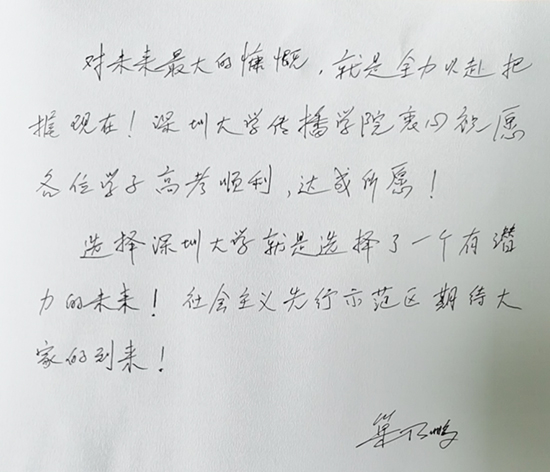 对未来最大的慷慨，就是全力以赴把
握现在！深圳大学传播学院衷心祝愿
各位学子高考顺利，达成所愿！
选择深圳大学就是选择了一个有潜
力的未来！社会主义先行示范区期待大
家的到来！
巢乃鹏